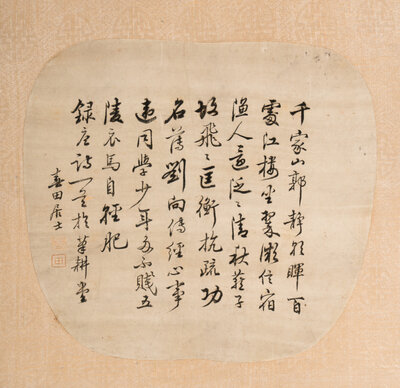 千家山郭靜朝暉百
處江樓坐翠微信宿
漁人還泛〻清秋燕子
故飛〻匡衡抗疏功
名薄劉向傳經心事
違同學少年多不賤五
陵衣馬自輕肥
錄唐詩一首於筆耕堂
田居士